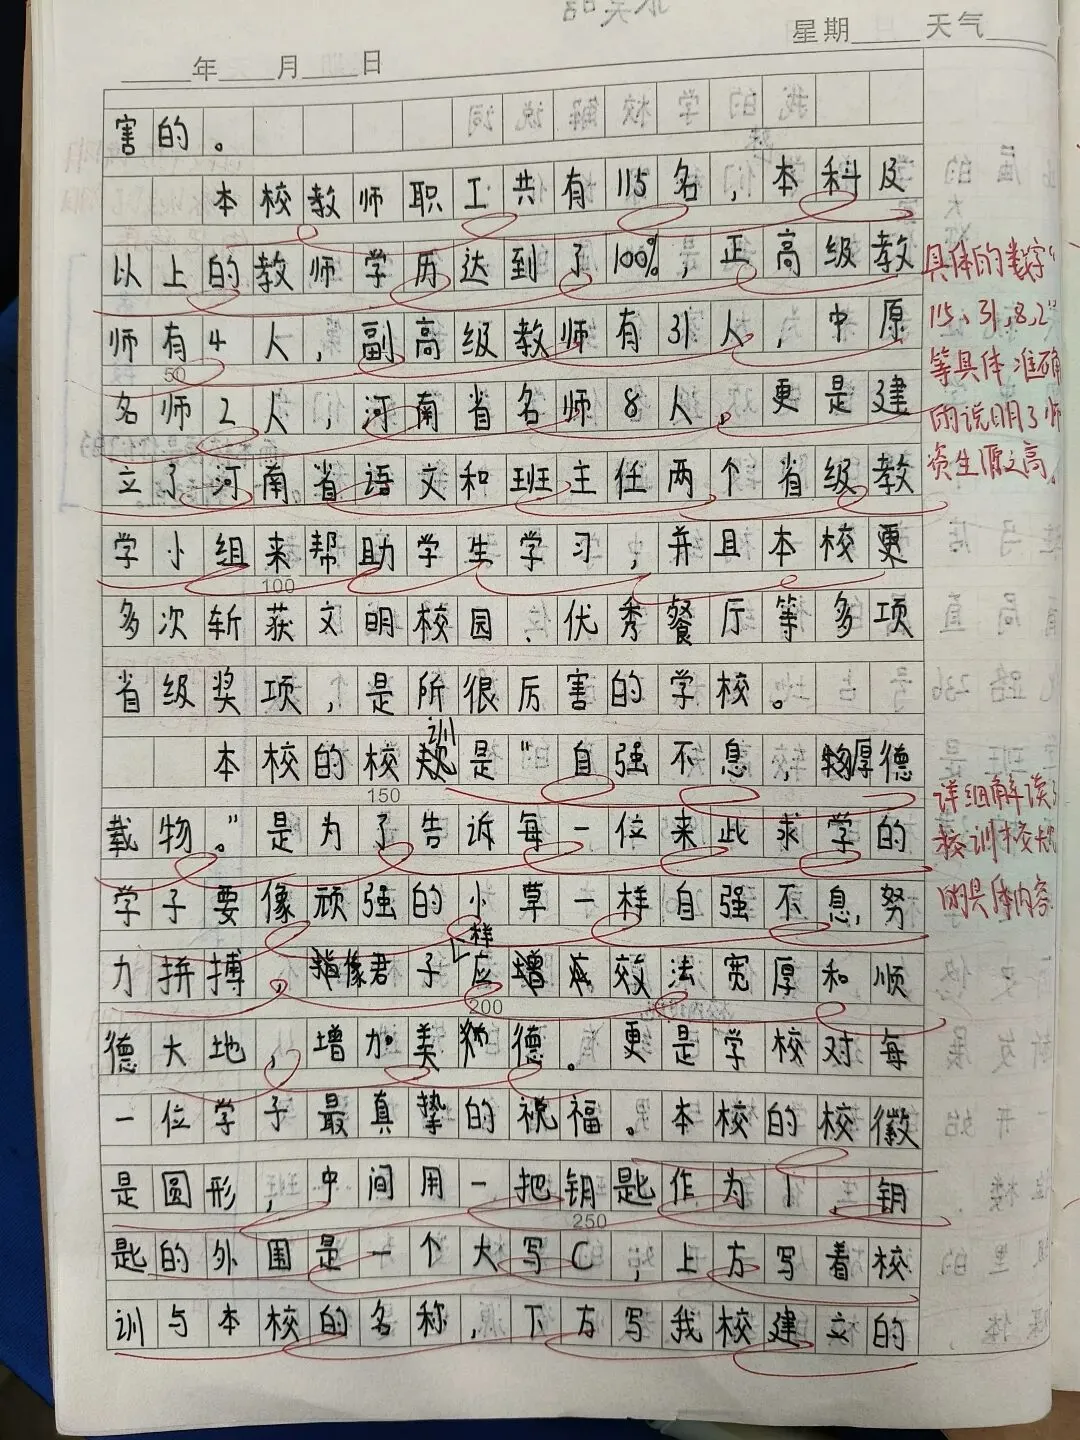 星期____天气____
____年____月____日
害的。
本校教师职工共有115名，本科及
以上的教师学历达到了100%，正高级教
师有4人，副高级教师有31人，中原
50
名师2人，河南省名师8人，更是建
立了河南省语文和班主任两个省级教
学小组来帮助学生学习，并且本校更
100
多次斩获文明校园、优秀餐厅等多项
省级奖项，是所很厉害的学校。
本校的校训是“自强不息，厚德
150
载物。”是为了告诉每一位来此求学的
学子要像顽强的小草一样自强不息，努
力拼搏，像君子样应效法宽厚和顺
200
德大地，增加美德。更是学校对每
一位学子最真挚的祝福。本校的校徽
是圆形，中间用一把钥匙作为1，钥
250
匙的外围是一个大写C，上方写着校
训与本校的名称，下方写我校建立的
具体的数字“
115、31，8，2”
等具体准确
的说明了师
资生源之高。
详细解读了
校训校规
的具体内容